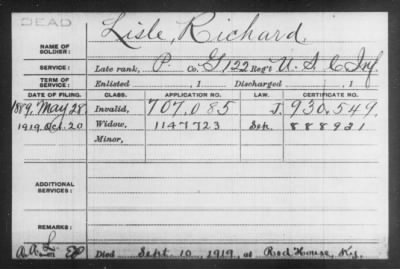 DEAD
Lisle, Richard.
NAME OF SOLDIER:
SERVICE: Late rank, P Co. G, 122 Reg't U. S. C Inf.
TERM OF SERVICE: Enlisted , 1 Discharged , 1
DATE OF FILING. CLASS. APPLICATION NO. LAW. CERTIFICATE NO.
1889, May 28 Invalid, 707,085 J. 930,549.
1919 Oct. 20 Widow, 1147723 Sep. 888921
Minor,
ADDITIONAL SERVICES:
REMARKS:
Died Sept. 10, 1919, at Red House, Ky.